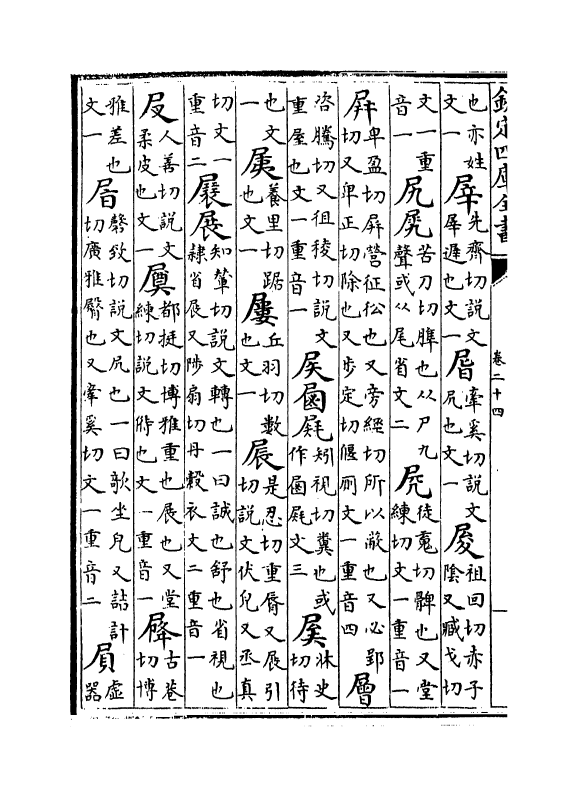 欽定四庫全書
卷二十四
也亦姓文一 屖 先齊切説文屖遲也文一 牽奚切説文尻也文一 祖回切赤子陰又臧戈切
文一重音一 尻 苦刀切脽也从尸九聲或从尾省文二 徒䰟切髀也又堂練切文一重音一
屏 卑盈切屏營征忪也又旁經切所以蔽也又必郢切又卑正切除也又步定切偃廁文一重音四 層
咨騰切又徂稜切説文重屋也文一重音一 矧視切糞也或作文三 牀史切待
也文一 養里切踞也文一 屢 丘羽切數也文一 屒 是忍切重脣又展引切説文伏皃又丞真
切文一重音二 展 知輦切説文轉也一曰誠也舒也省視也隸省展又陟扇切丹縠衣文二重音一
㞋 人善切説文柔皮也文一 都挺切博雅重也展也又堂練切説文偫也文一重音一 古巷切博
雅差也文一 磬致切説文尻也一曰坐皃又詰計切廣雅臀也又牽奚切文一重音二 屓 虛器